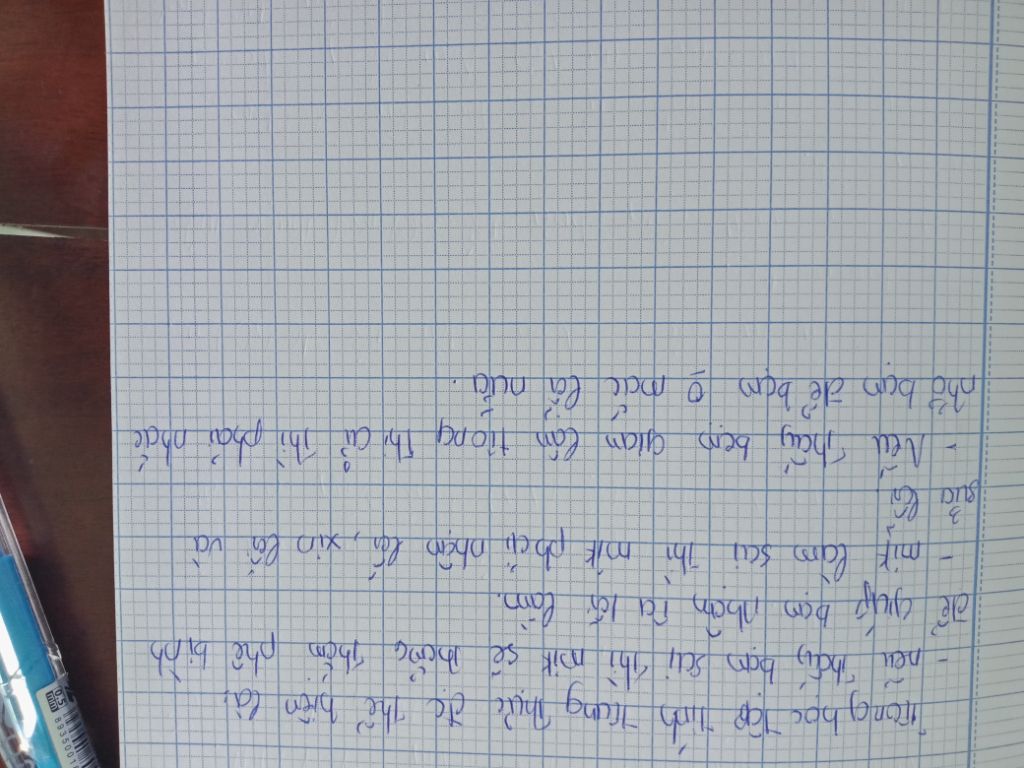 Trong học tập tính trung thực đc thể hiện là:
- nếu thấy bạn sai thì mik sẽ thẳng thắn phê bình
để giúp bạn nhận ra lỗi lầm.
- mik làm sai thì mik phải nhận lỗi, xin lỗi và
sửa lỗi.
- Nếu thấy bạn gian lận trong thi cử thì phải nhắc
nhở bạn để bạn o mắc lỗi nữa.
0.5
mm
8935001